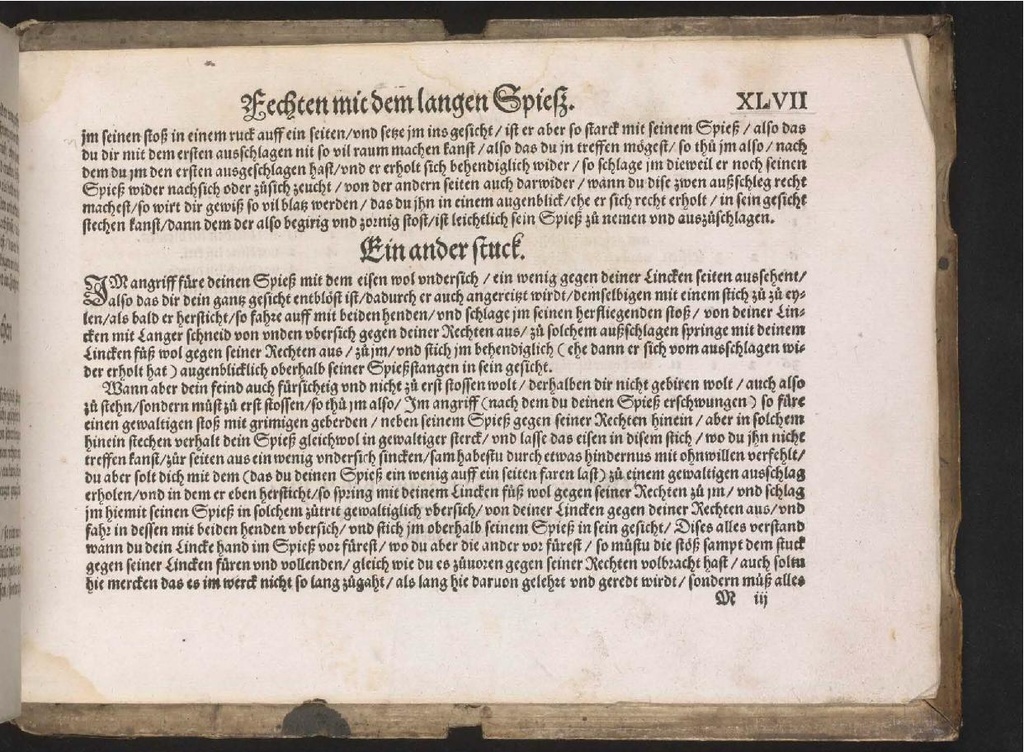 Fechten mit dem langen Spieß. XLVII
jm seinen stoß in einem ruck auff ein seiten/vnd setze jm ins gesicht/ ist er aber so starck mit seinem Spieß / also das
du dir mit dem ersten ausschlagen nit so vil raum machen kanst/also das du jn treffen mögest/ so thů jm also/ nach
dem du jm den ersten ausgeschlagen hast/vnd er erholt sich behendiglich wider / so schlage jm dieweil er noch seinen
Spieß wider nachsich oder zůsich zeucht / von der andern seiten auch darwider / wann du dise zwen außschleg recht
machest/so wirt dir gewiß so vil blatz werden / das du jhn in einem augenblick/ehe er sich recht erholt / in sein gesicht
stechen kanst/dann dem der also begirig vnd zornig stost/ist leichtlich sein Spieß zů nemen vnd auszůschlagen.
Ein ander stuck.
IM angriff füre deinen Spieß mit dem eisen wol vndersich / ein wenig gegen deiner Lincken seiten aussehent/
also das dir dein gantz gesicht entblöst ist/dadurch er auch angereitzt wirdt/demselbigen mit einem stich zů zů ey-
len/als bald er hersticht/so fahre auff mit beiden henden/vnd schlage jm seinen herfliegenden stoß / von deiner Lin-
cken mit Langer schneid von vnden vbersich gegen deiner Rechten aus/ zů solchem außschlagen springe mit deinem
Lincken fůß wol gegen seiner Rechten aus / zů jm/ vnd stich jm behendiglich ( ehe dann er sich vom ausschlagen wi-
der erholt hat ) augenblicklich oberhalb seiner Spießstangen in sein gesicht.
Wann aber dein feind auch fürsichtig vnd nicht zů erst stossen wolt / derhalben dir nicht gebiren wolt / auch also
zů stehn/sondern můst zů erst stossen/so thů jm also/ Im angriff (nach dem du deinen Spieß erschwungen) so füre
einen gewaltigen stoß mit grimigen geberden / neben seinem Spieß gegen seiner Rechten hinein / aber in solchem
hinein stechen verhalt dein Spieß gleichwol in gewaltiger sterck/ vnd lasse das eisen in disem stich / wo du jhn nicht
treffen kanst/zůr seiten aus ein wenig vndersich sincken/sam habestu durch etwas hindernus mit ohnwillen verfehlt/
du aber solt dich mit dem (das du deinen Spieß ein wenig auff ein seiten faren last) zů einem gewaltigen ausschlag
erholen/vnd in dem er eben hersticht/so spring mit deinem Lincken fůß wol gegen seiner Rechten zů jm / vnd schlag
jm hiemit seinen Spieß in solchem zůtrit gewaltiglich vbersich/ von deiner Lincken gegen deiner Rechten aus/vnd
fahr in dessen mit beiden henden vbersich/ vnd stich jm oberhalb seinem Spieß in sein gesicht/ Dises alles verstand
wann du dein Lincke hand im Spieß vor fürest/ wo du aber die ander vor fürest / so můstu die stöß sampt dem stuck
gegen seiner Lincken füren vnd vollenden/ gleich wie du es zůuoren gegen seiner Rechten volbracht hast / auch soltu
hie mercken das es im werck nicht so lang zůgaht / als lang hie daruon gelehrt vnd geredt wirdt/ sondern můß alles
M iij